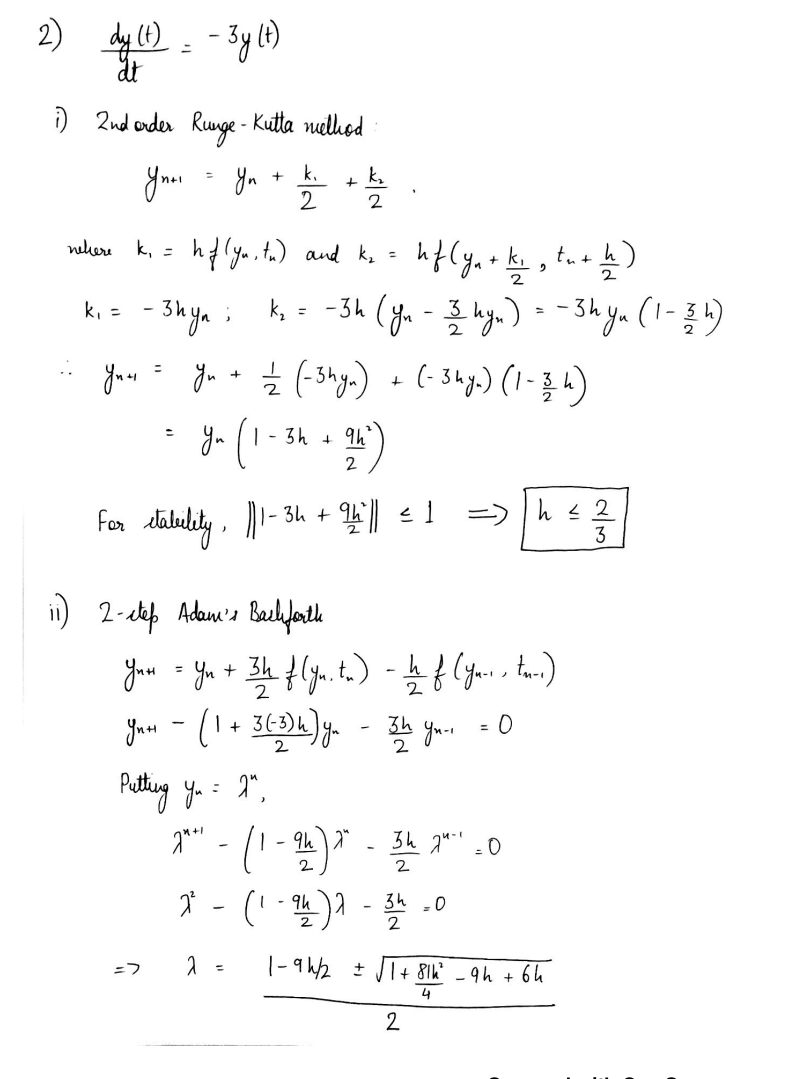 2) dy(t)/dt = -3y(t)
i) 2nd order Runge-Kutta method:
y_{n+1} = y_n + k_1/2 + k_2/2 .
where k_1 = hf(y_n, t_n) and k_2 = hf(y_n + k_1/2, t_n + h/2)
k_1 = -3hy_n ; k_2 = -3h(y_n - 3/2 hy_n) = -3hy_n(1 - 3/2 h)
∴ y_{n+1} = y_n + 1/2(-3hy_n) + (-3hy_n)(1 - 3/2 h)
= y_n(1 - 3h + 9h²/2)
For stability, ||1 - 3h + 9h²/2|| ≤ 1 ⟹ h ≤ 2/3
ii) 2-step Adam's Bashforth
y_{n+1} = y_n + 3h/2 f(y_n, t_n) - h/2 f(y_{n-1}, t_{n-1})
y_{n+1} - (1 + 3(-3)h/2)y_n - 3h/2 y_{n-1} = 0
Putting y_n = λ^n,
λ^{n+1} - (1 - 9h/2)λ^n - 3h/2 λ^{n-1} = 0
λ² - (1 - 9h/2)λ - 3h/2 = 0
=> λ = (1 - 9h/2 ± √(1 + 81h²/4 - 9h + 6h))/2